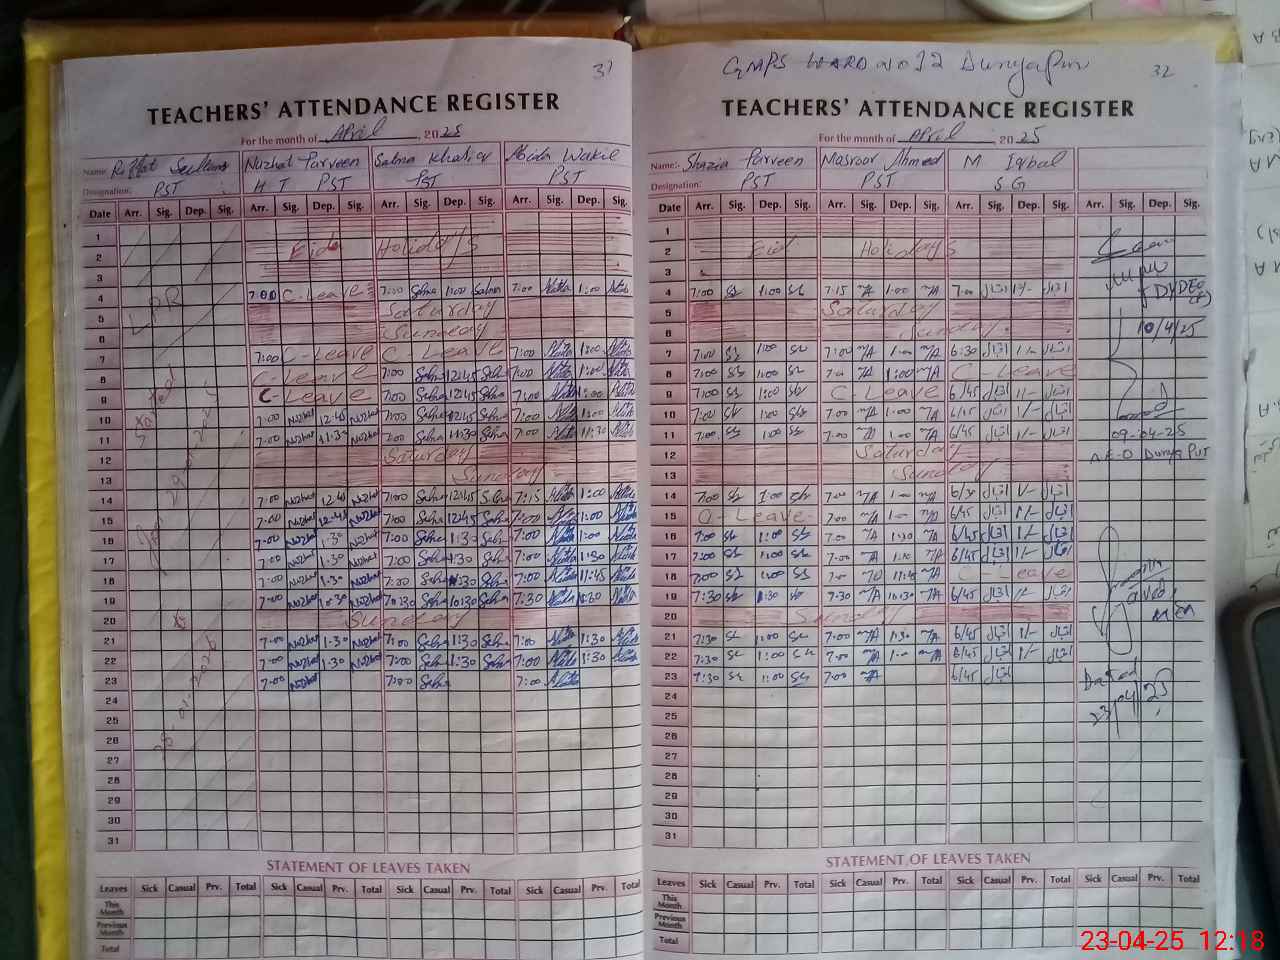 37
TEACHERS' ATTENDANCE REGISTER
For the month of April, 2025
Name:- Riffat Sultana Nuzhat Parveen Salma Khatoon Abida Wakil
Designation: PST H T PST PST PST
Date Arr. Sig. Dep. Sig. Arr. Sig. Dep. Sig. Arr. Sig. Dep. Sig. Arr. Sig. Dep. Sig.
1
2 Eid Holidays
3
4 7:00 C-Leave 7:00 Salma 1:00 Salma 7:00 Abida 1:00 Abida
5 Saturday
6 Sunday
7 7:00 C-Leave C-Leave 7:00 Abida 1:00 Abida
8 C-Leave 7:00 Salma 12:45 Salma 7:00 Abida 1:00 Abida
9 C-Leave 7:00 Salma 12:45 Salma 7:00 Abida 1:00 Abida
10 7:00 Nuzhat 12:45 Nuzhat 7:00 Salma 12:45 Salma 7:00 Abida 1:00 Abida
11 7:00 Nuzhat 11:30 Nuzhat 7:00 Salma 11:30 Salma 7:00 Abida 11:30 Abida
12 Saturday
13 Sunday
14 7:00 Nuzhat 12:45 Nuzhat 7:00 Salma 12:45 Salma 7:15 Abida 1:00 Abida
15 7:00 Nuzhat 12:45 Nuzhat 7:00 Salma 12:45 Salma 7:00 Abida 1:00 Abida
16 7:00 Nuzhat 1:30 Nuzhat 7:00 Salma 1:30 Salma 7:00 Abida 1:00 Abida
17 7:00 Nuzhat 1:30 Nuzhat 7:00 Salma 1:30 Salma 7:00 Abida 1:30 Abida
18 7:00 Nuzhat 1:30 Nuzhat 7:00 Salma Salma 7:00 Abida 11:45 Abida
19 7:00 Nuzhat 10:30 Nuzhat Salma 10:30 Salma 7:30 Abida Abida
20 Sunday
21 7:00 Nuzhat 1:30 Nuzhat 7:00 Salma 1:30 Salma 7:00 Abida 1:30 Abida
22 7:00 Nuzhat 1:30 Nuzhat 7:00 Salma 1:30 Salma 7:00 Abida 1:30 Abida
23 7:00 Nuzhat 7:00 Salma 7:00 Abida
24
25
26
27
28
29
30
31
LPR
STATEMENT OF LEAVES TAKEN
Leaves Sick Casual Prv. Total Sick Casual Prv. Total Sick Casual Prv. Total Sick Casual Prv. Total
This Month
Previous Month
Total
GMPS WARD NO 12 Dunyapur
32
TEACHERS' ATTENDANCE REGISTER
For the month of April, 2025
Name:- Shazia Parveen Masroor Ahmed M Iqbal
Designation: PST PST S G
Date Arr. Sig. Dep. Sig. Arr. Sig. Dep. Sig. Arr. Sig. Dep. Sig. Arr. Sig. Dep. Sig.
1
2 Eid Holidays
3
4 7:00 1:00 7:15 MA 1:00 MA 7:00 اقبال 1/- اقبال
5 Saturday
6 Sunday
7 7:00 1:00 7:00 MA 1:00 MA 6:30 اقبال 1/- اقبال
8 7:00 1:00 7:00 MA 1:00 MA C-Leave
9 7:00 1:00 C-Leave 6/45 اقبال 1/- اقبال
10 7:00 1:00 7:00 MA 1:00 MA 6/45 اقبال 1/- اقبال
11 7:00 1:00 7:00 MA 1:00 MA 6/45 اقبال 1/- اقبال
12 Saturday
13 Sunday
14 7:00 1:00 7:00 MA 1:00 MA 6/30 اقبال 1/- اقبال
15 C-Leave 7:00 MA 1:00 MA 6/45 اقبال 1/- اقبال
16 7:00 1:00 7:00 MA 1:30 MA 6/45 اقبال 1/- اقبال
17 7:00 1:00 7:00 MA MA 6/45 اقبال 1/- اقبال
18 7:00 1:00 7:00 MA 11:45 MA C-Leave
19 7:30 7:30 MA 10:30 MA 6/45 اقبال 1/- اقبال
20 Sunday
21 7:30 1:00 7:00 MA 1:30 MA 6/45 اقبال 1/- اقبال
22 7:30 1:00 7:00 MA 1:00 MA 6/45 اقبال 1/- اقبال
23 7:30 1:00 7:00 MA 6/45 اقبال
24
25
26
27
28
29
30
31
10/4/25
09-04-25
AEO Dunya Pur
MEA
Dated
23/04/25
STATEMENT OF LEAVES TAKEN
Leaves Sick Casual Prv. Total Sick Casual Prv. Total Sick Casual Prv. Total Sick Casual Prv. Total
This Month
Previous Month
Total
23-04-25 12:18